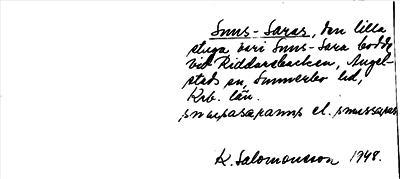 Snus-Saras, den lilla
stuga vari Snus-Sara bodde
vid Riddarebacken, Ängel-
stads sn, Sunnerbo hd,
Krb. län.
el.
K. Salomonsson 1948.